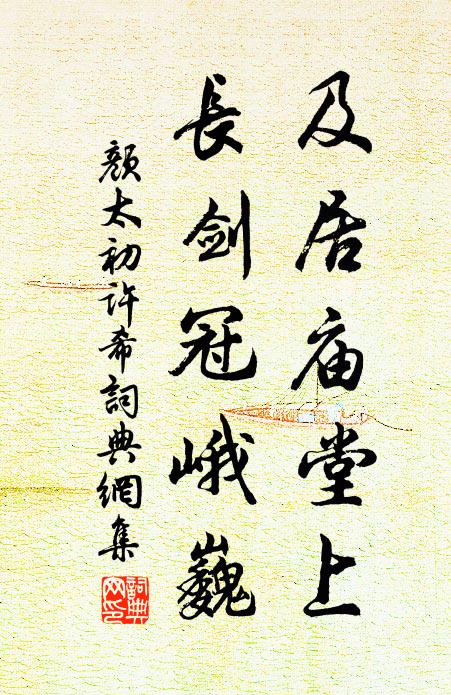 及居庙堂上
長剑冠峨巍
顏太初許希詞典網集
詞典
网印